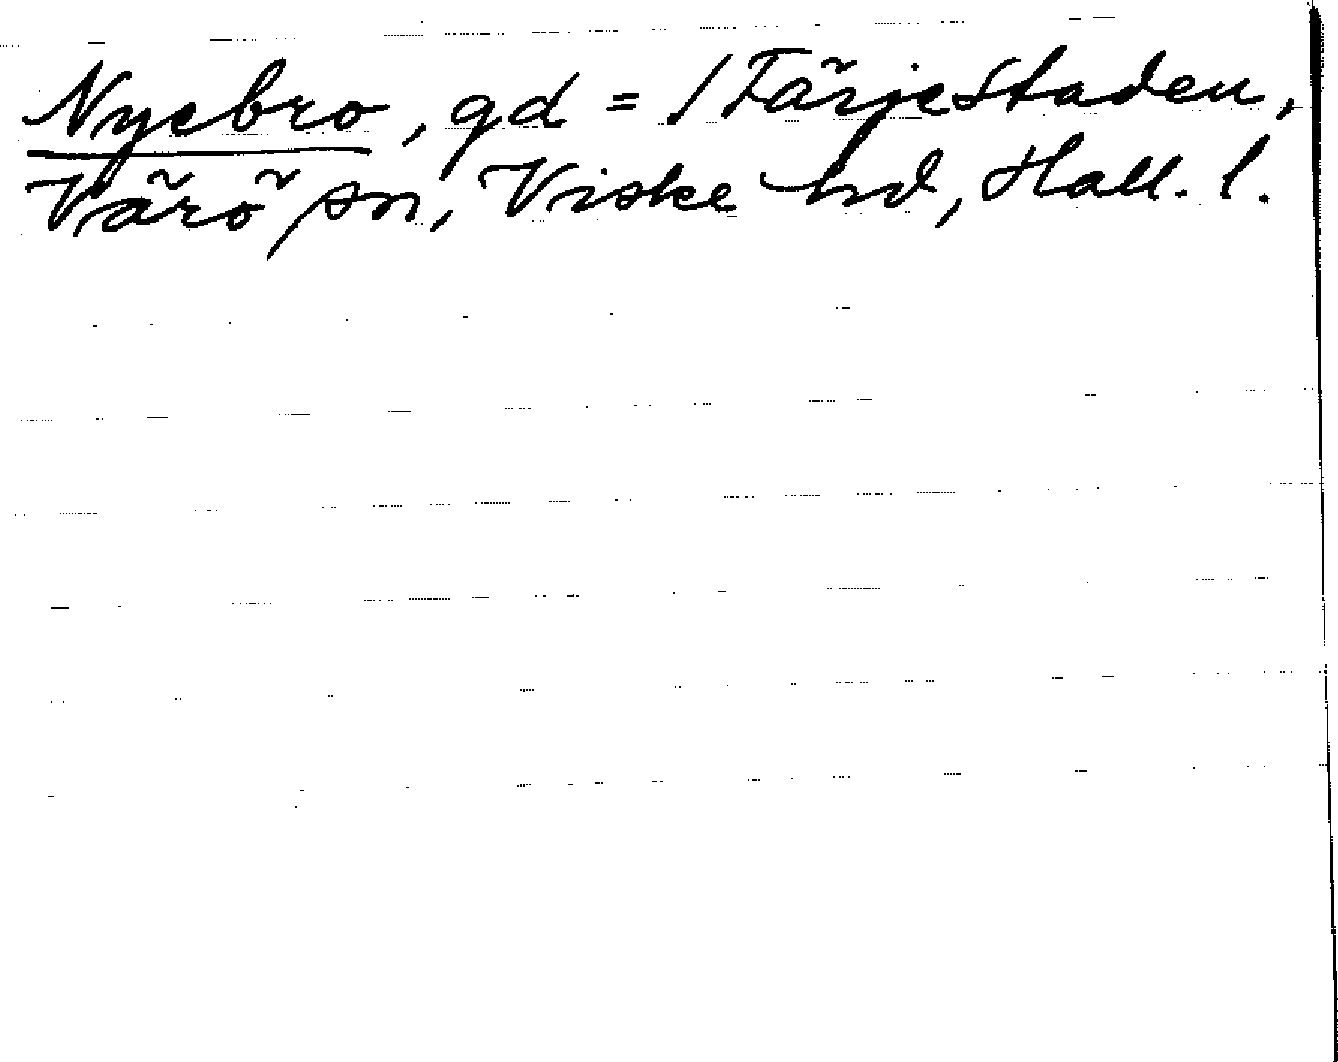 Nyebro, gd = /Färjestaden,
Värö sn, Viske hd, Hall. l.